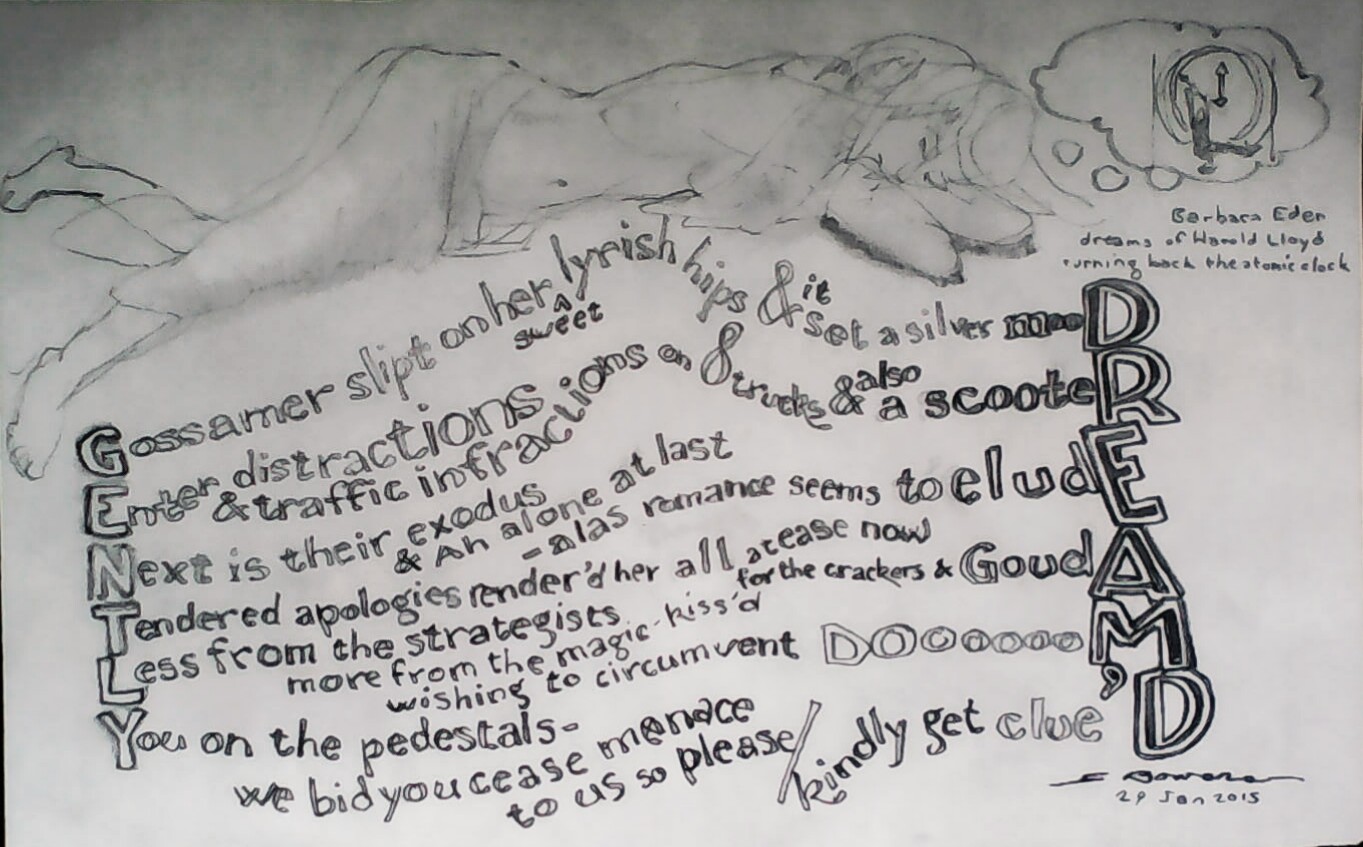 Barbara Eden
dreams of Harold Lloyd
turning back the atomic clock
Gossamer slipt on her sweet lyrish hips & it set a silver mooD
Enter distractions
& traffic infractions on & trucks & also a scooteR
Next is their exodus
& Ah alone at last
- alas romance seems to eludE
Tendered apologies render'd her all at ease now
for the crackers & GoudA
Less from the strategists
more from the magic-kiss'd
wishing to circumvent DOooooooM
You on the pedestals-
we bid you cease menace
to us so please/
kindly get clue'D
29 Jan 2015